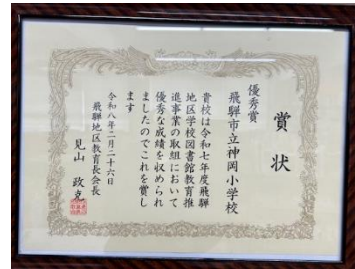 賞状
優秀賞
飛騨市立神岡小学校
貴校は令和七年度飛騨
地区学校図書館教育推
進事業の取組において
優秀な成績を収められ
ましたのでこれを賞し
ます
令和八年二月二十六日
飛騨地区教育長会長
見山政克